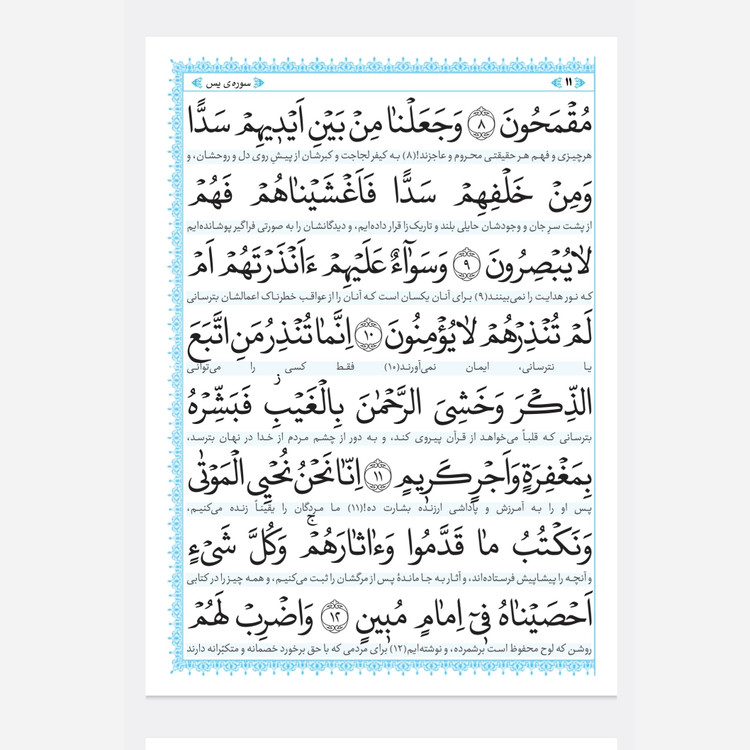 ۱۱ سوره‌ی یس
مُقْمَحُونَ ﴿۸﴾ وَجَعَلْنا مِنْ بَيْنِ اَيْدِيهِمْ سَدًّا
هرچیزی و فهم هر حقیقتی محروم و عاجزند!(۸) به کیفر لجاجت و کبرشان از پیش روی دل و روحشان، و
وَمِنْ خَلْفِهِمْ سَدًّا فَاَغْشَيْناهُمْ فَهُمْ
از پشت سرِ جان و وجودشان حایلی بلند و تاریک‌زا قرار داده‌ایم، و دیدگانشان را به صورتی فراگیر پوشانده‌ایم
لايُبْصِرُونَ ﴿۹﴾ وَسَوآءٌ عَلَيْهِمْ ءَاَنْذَرْتَهُمْ اَمْ
که نور هدایت را نمی‌بینند(۹) برای آنان یکسان است که آنان را از عواقب خطرناک اعمالشان بترسانی
لَمْ تُنْذِرْهُمْ لايُؤْمِنُونَ ﴿۱۰﴾ اِنَّما تُنْذِرُ مَنِ اتَّبَعَ
یا نترسانی، ایمان نمی‌آورند(۱۰) فقط کسی را می‌توانی
الذِّكْرَ وَخَشِىَ الرَّحْمٰنَ بِالْغَيْبِ ۖ فَبَشِّرْهُ
بترسانی که قلباً می‌خواهد از قرآن پیروی کند، و به دور از چشم مردم از خدا در نهان بترسد،
بِمَغْفِرَةٍ وَاَجْرٍ كَرِيمٍ ﴿۱۱﴾ اِنّا نَحْنُ نُحْيِي الْمَوْتٰى
پس او را به آمرزش و پاداشی ارزنده بشارت ده!(۱۱) ما مردگان را یقیناً زنده می‌کنیم،
وَنَكْتُبُ ما قَدَّمُوا وَءاثارَهُمْ ۚ وَكُلَّ شَىْءٍ
و آنچه را پیشاپیش فرستاده‌اند، و آثار به جا ماندهٔ پس از مرگشان را ثبت می‌کنیم، و همه چیز را در کتابی
اَحْصَيْناهُ فِىٓ اِمامٍ مُبِينٍ ﴿۱۲﴾ وَاضْرِبْ لَهُمْ
روشن که لوح محفوظ است برشمرده، و نوشته‌ایم(۱۲) برای مردمی که با حق برخورد خصمانه و متکبّرانه دارند